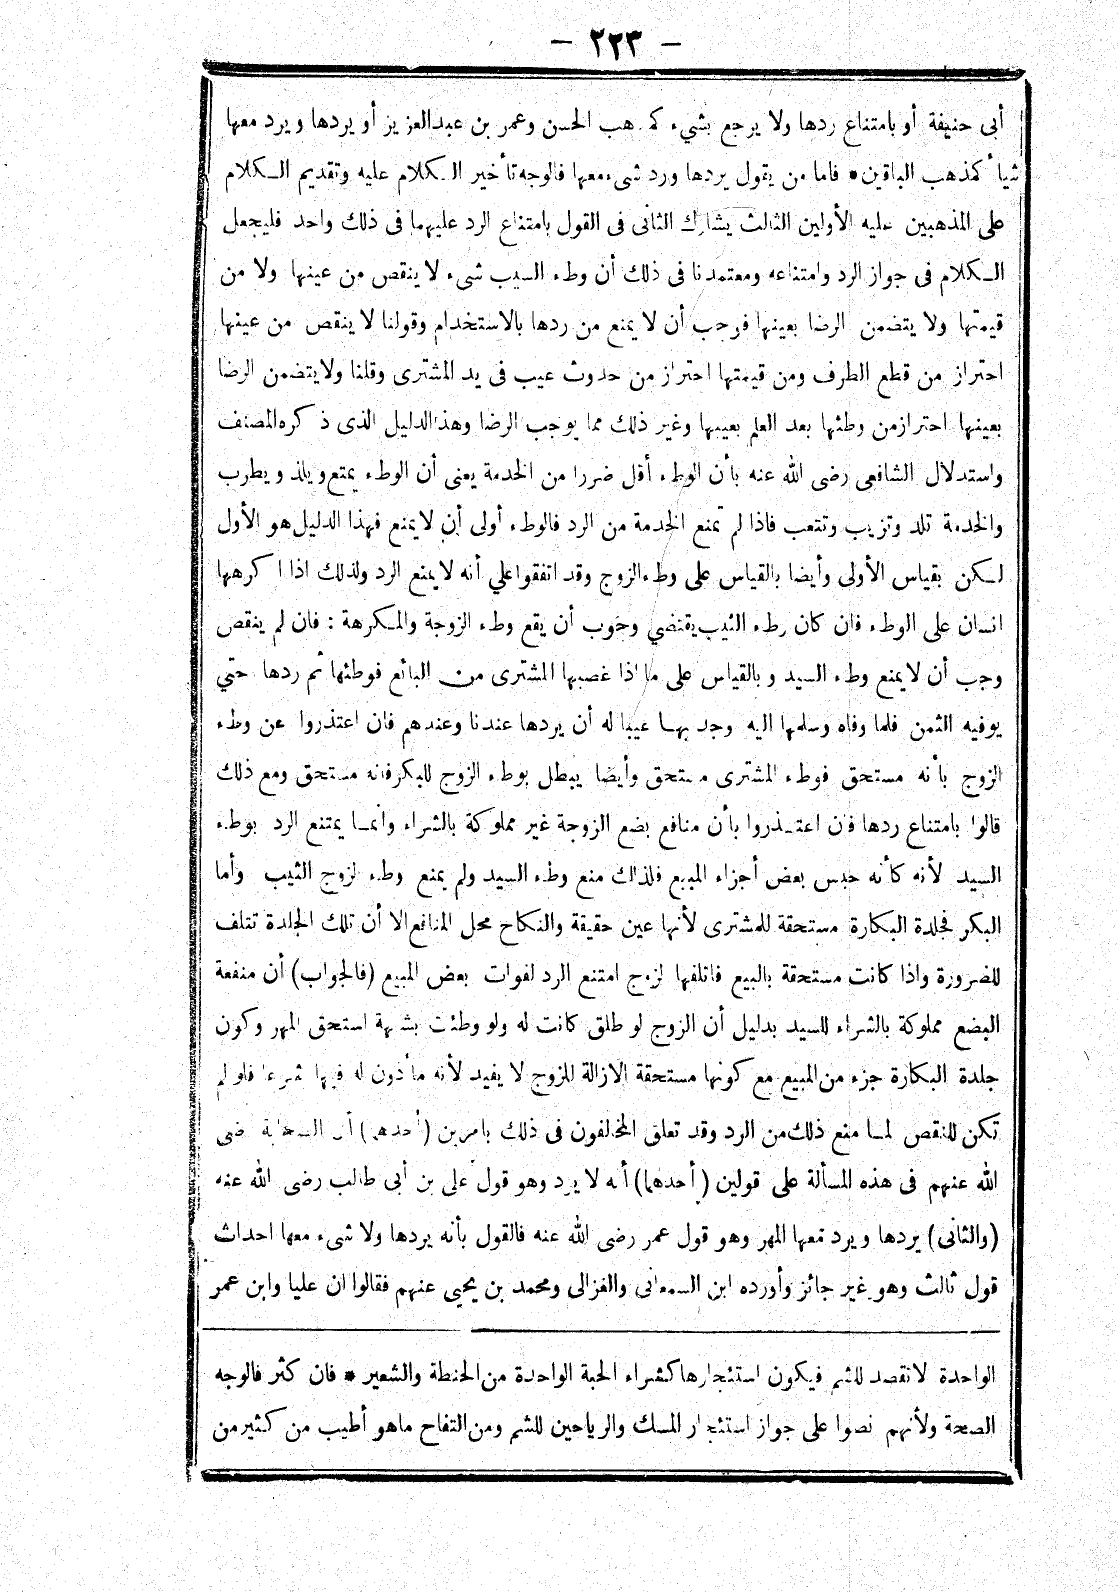 — ٢٢٣ —
أبى حنيفة أو بامتناع ردها ولا يرجع بشيء كمذهب الحسن وعمر بن عبدالعزيز أو يردها ويرد معها
شيأ كمذهب الباقين * فاما من يقول يردها ورد شيء معها فالوجه تأخير الكلام عليه وتقديم الكلام
على المذهبين عليه الأولين الثالث يشارك الثانى فى القول بامتناع الرد عليهما فى ذلك واحد فليجعل
الكلام فى جواز الرد وامتناعه ومعتمدنا فى ذلك أن وطء السيب شىء لا ينقص من عينها ولا من
قيمتها ولا يتضمن الرضا بعينها فوجب أن لا يمنع من ردها بالاستخدام وقولنا لا ينقص من عينها
احتراز من قطع الطرف ومن قيمتها احتراز من حدوث عيب فى يد المشترى وقلنا ولا يتضمن الرضا
بعينها احتراز من وطئها بعد العلم بعيبها وغير ذلك مما يوجب الرضا وهذا الدليل الذى ذكره المصنف
واستدلال الشافعى رضى الله عنه بأن الوطء أقل ضررا من الخدمة يعنى أن الوطء يمتع ويلذ ويطرب
والخدمة تلد وتزيب وتتعب فاذا لم تمنع الخدمة من الرد فالوطء أولى أن لا يمنع فهذا الدليل هو الأول
لكن بقياس الأولى وأيضا بالقياس على وطء الزوج وقد اتفقوا على أنه لا يمنع الرد ولذلك اذا اكرهها
انسان على الوطء فان كان وطء الثيب يقتضي وجوب أن يقع وطء الزوجة والمكرهة : فان لم ينقص
وجب أن لا يمنع وطء السيد وبالقياس على ما اذا غصبها المشترى من البائع فوطئها ثم ردها حتي
يوفيه الثمن فلما وفاه وسلمها اليه وجد بها عيبا له أن يردها عندنا وعندهم فان اعتذروا عن وطء
الزوج بأنه مستحق فوطء المشترى مستحق وأيضا يبطل بوطء الزوج للبكر فانه مستحق ومع ذلك
قالوا بامتناع ردها فان اعتذروا بأن منافع بضع الزوجة غير مملوكة بالشراء وانما يمتنع الرد بوطء
السيد لأنه كأنه حبس بعض أجزاء المبيع فلذلك منع وطء السيد ولم يمنع وطء الزوج الثيب وأما
البكر فجلدة البكارة مستحقة للمشترى لأنها عين حقيقة والنكاح محل المنافع الا أن تلك الجلدة تتلف
للضرورة واذا كانت مستحقة بالبيع فاتلفها الزوج امتنع الرد لفوات بعض المبيع (فالجواب) أن منفعة
البضع مملوكة بالشراء للسيد بدليل أن الزوج لو طلق كانت له ولو وطئت بشبهة استحق المهر وكون
جلدة البكارة جزء من المبيع مع كونها مستحقة الازالة للزوج لا يفيد لأنه مأذون له فيها شرعا فلو لم
تكن للنقص لما منع ذلك من الرد وقد تعلق المخالفون فى ذلك بامرين (أحدهما) أن الصحابة رضى
الله عنهم فى هذه المسألة على قولين (أحدهما) أنه لا يرد وهو قول على بن أبى طالب رضى الله عنه
(والثانى) يردها ويرد معها المهر وهو قول عمر رضى الله عنه فالقول بأنه يردها ولا شىء معها احداث
قول ثالث وهو غير جائز وأورده ابن السمعانى والغزالى ومحمد بن يحيى عنهم فقالوا ان عليا وابن عمر
الواحدة لا تقصد للشم فيكون استئجارها كشراء الحبة الواحدة من الحنطة والشعير * فان كثر فالوجه
الصحة ولأنهم نصوا على جواز استئجار المسك والرياحين للشم ومن التفاح ماهو أطيب من كثير من